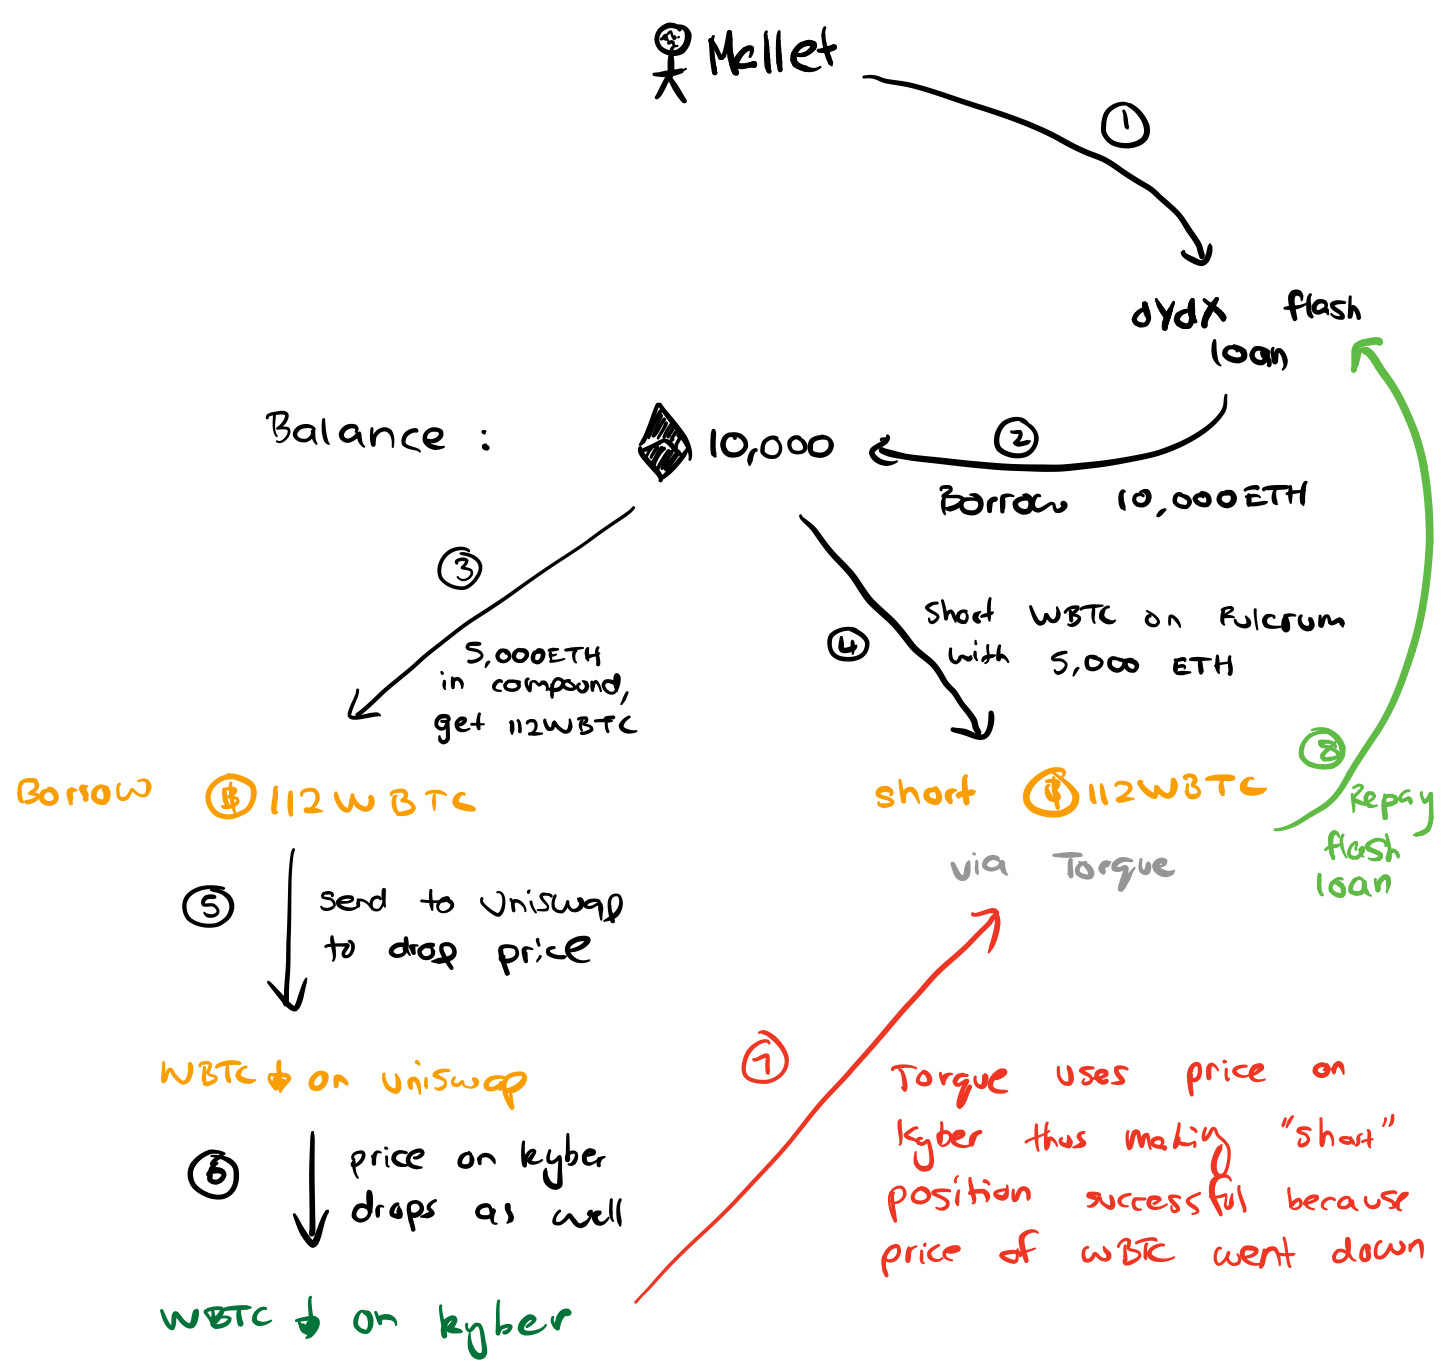 Mallet
1
dYdX flash
loan
Balance : 10,000
2
Borrow 10,000 ETH
3
5,000 ETH
in compound,
get 112 WBTC
4
Short WBTC on Fulcrum
with 5,000 ETH
Borrow ₿ 112 WBTC
short ₿ 112 WBTC
via Torque
8
Repay
flash
loan
5
send to uniswap
to drop price
WBTC ↓ on uniswap
6
price on kyber
drops as well
WBTC ↓ on kyber
7
Torque uses price on
kyber thus making "short"
position successful because
price of WBTC went down